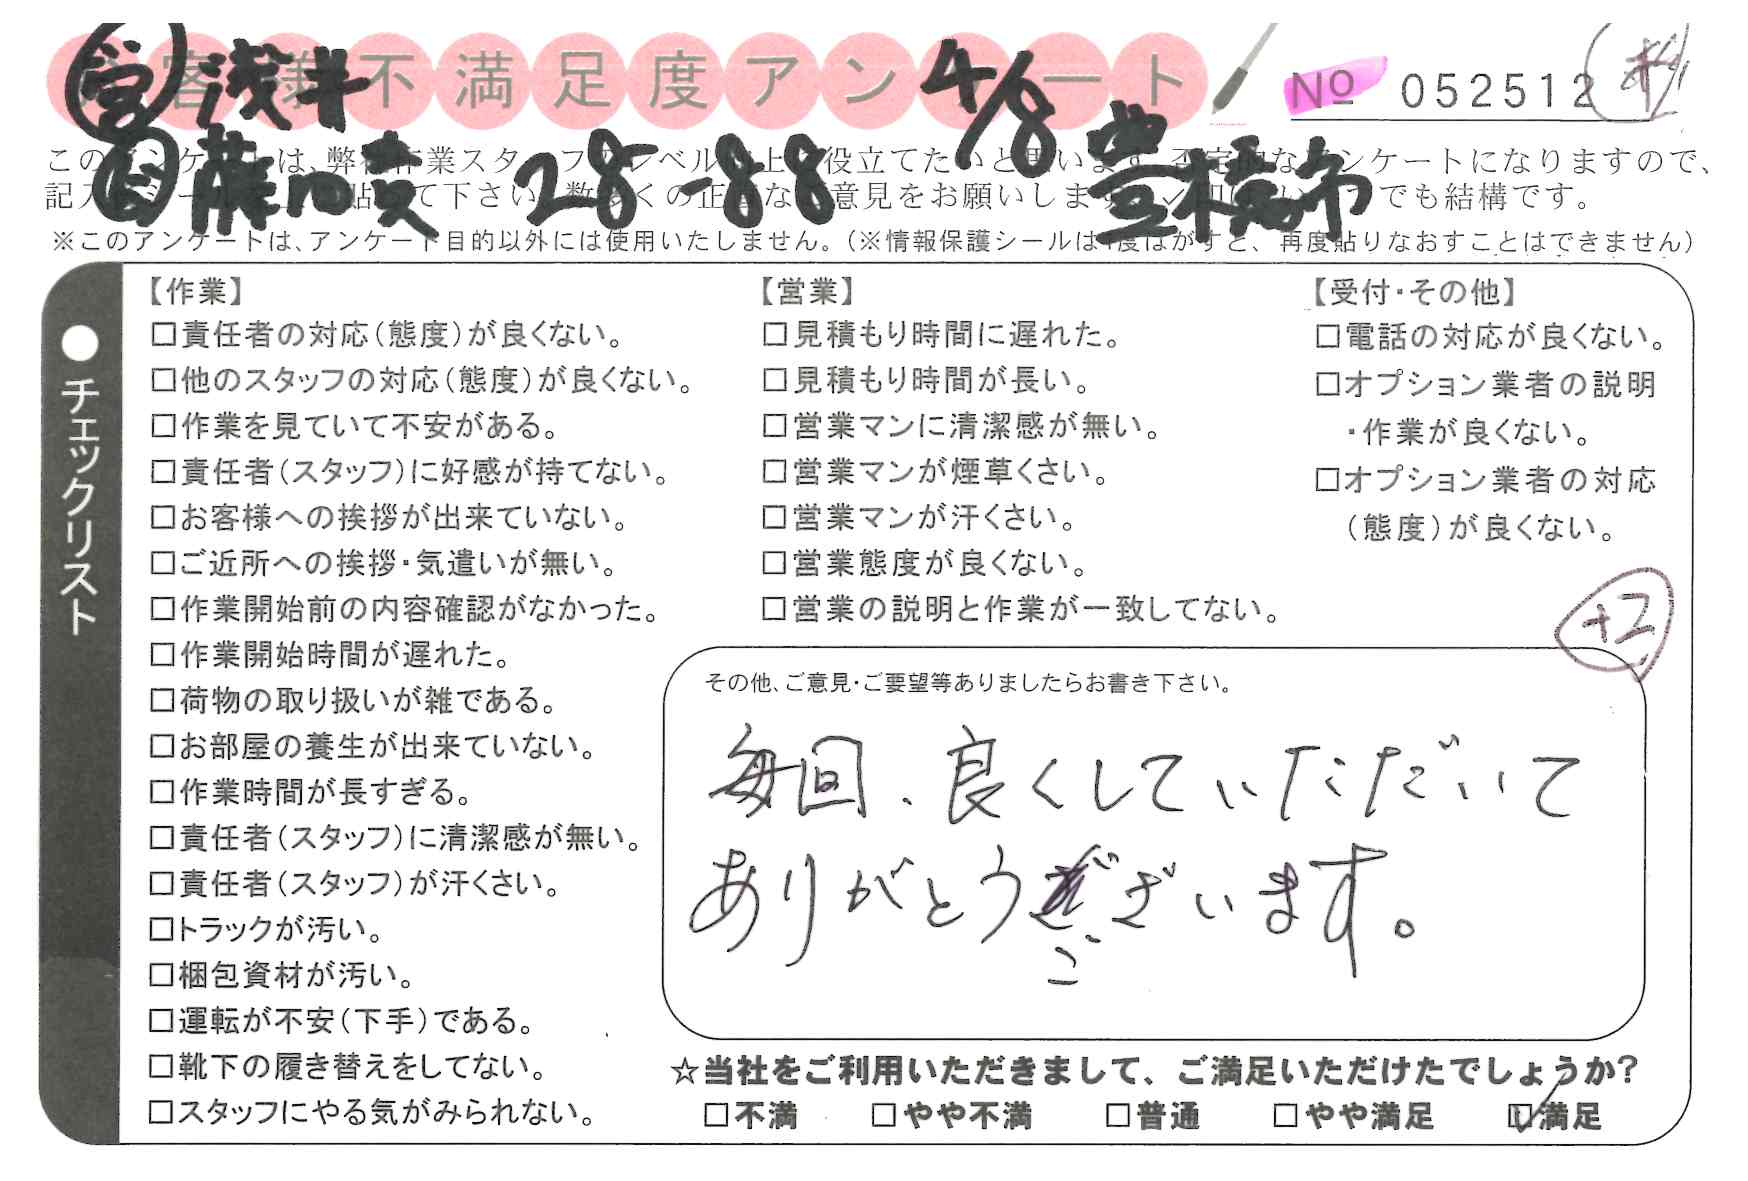 お客様不満足度アンケート
№ 052512
営 浅井
4/8
28-88
豊橋市
このアンケートは、弊社作業スタッフのレベル向上に役立てたいと思います。否定的なアンケートになりますので、
※このアンケートは、アンケート目的以外には使用いたしません。(※情報保護シールは1度はがすと、再度貼りなおすことはできません)
●チェックリスト
【作業】
□責任者の対応(態度)が良くない。
□他のスタッフの対応(態度)が良くない。
□作業を見ていて不安がある。
□責任者(スタッフ)に好感が持てない。
□お客様への挨拶が出来ていない。
□ご近所への挨拶・気遣いが無い。
□作業開始前の内容確認がなかった。
□作業開始時間が遅れた。
□荷物の取り扱いが雑である。
□お部屋の養生が出来ていない。
□作業時間が長すぎる。
□責任者(スタッフ)に清潔感が無い。
□責任者(スタッフ)が汗くさい。
□トラックが汚い。
□梱包資材が汚い。
□運転が不安(下手)である。
□靴下の履き替えをしてない。
□スタッフにやる気がみられない。
【営業】
□見積もり時間に遅れた。
□見積もり時間が長い。
□営業マンに清潔感が無い。
□営業マンが煙草くさい。
□営業マンが汗くさい。
□営業態度が良くない。
□営業の説明と作業が一致してない。
【受付・その他】
□電話の対応が良くない。
□オプション業者の説明
・作業が良くない。
□オプション業者の対応
(態度)が良くない。
+2
その他、ご意見・ご要望等ありましたらお書き下さい。
毎回、良くしていただいて
ありがとうございます。
☆当社をご利用いただきまして、ご満足いただけたでしょうか?
□不満 □やや不満 □普通 □やや満足 ☑満足